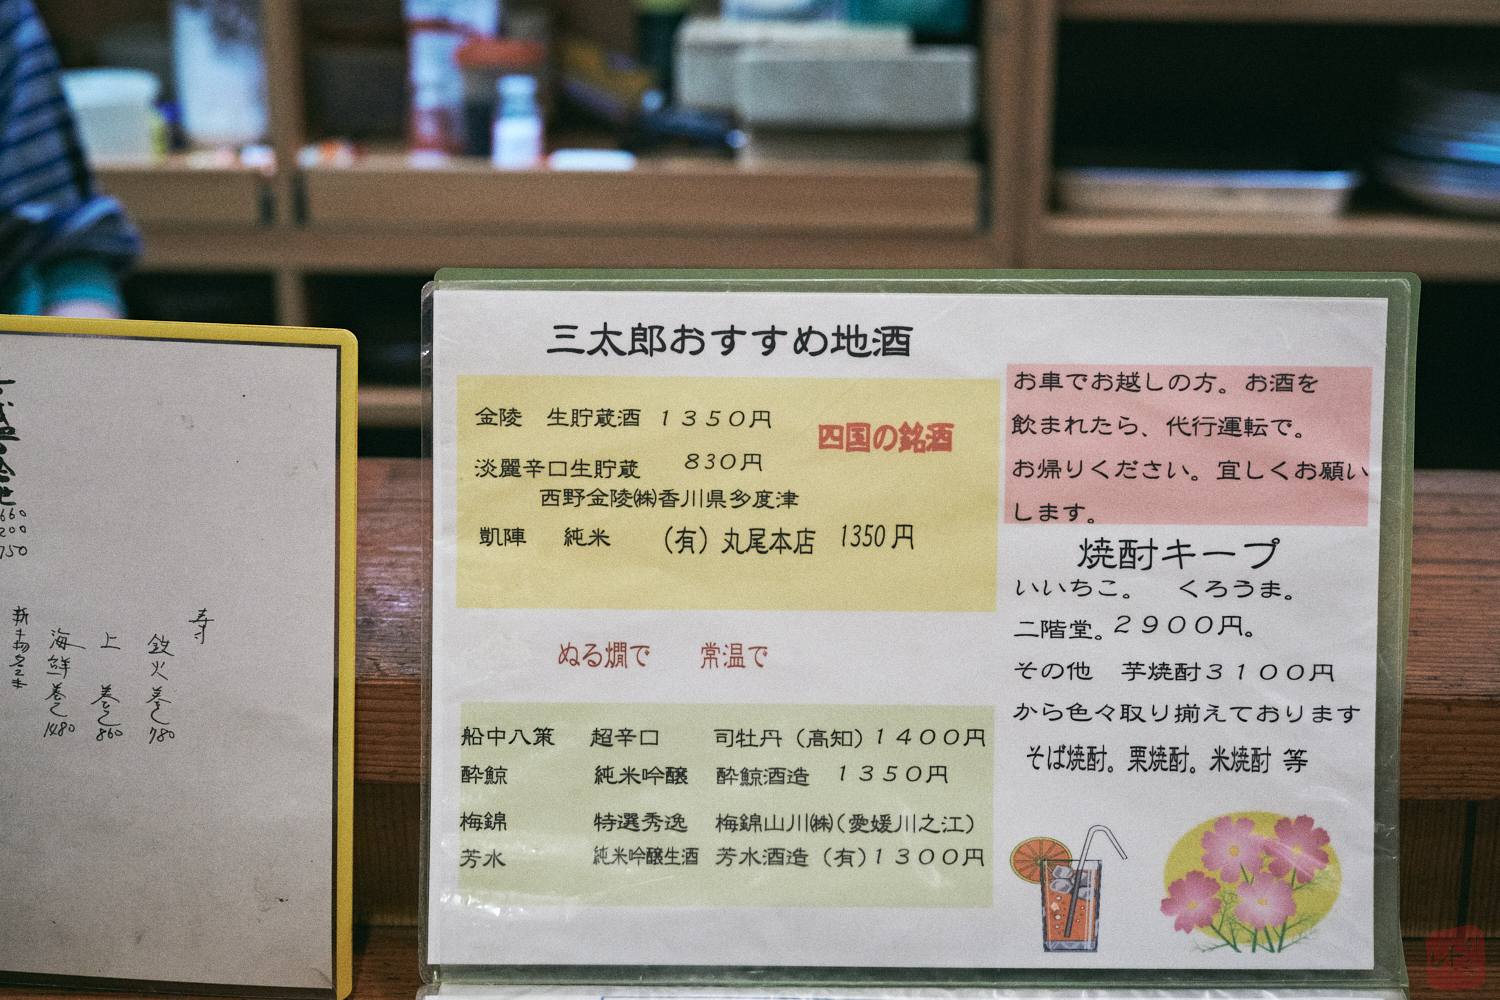 660
200
750
寿
鉄火巻 780
上巻 860
海鮮巻 1480
三太郎おすすめ地酒
金陵　生貯蔵酒　１３５０円
四国の銘酒
淡麗辛口生貯蔵　８３０円
西野金陵㈱香川県多度津
凱陣　純米　（有）丸尾本店　1350円
ぬる燗で　常温で
船中八策　超辛口　司牡丹（高知）１４００円
酔鯨　純米吟醸　酔鯨酒造　１３５０円
梅錦　特選秀逸　梅錦山川㈱（愛媛川之江）
芳水　純米吟醸生酒　芳水酒造（有）１３００円
お車でお越しの方。お酒を
飲まれたら、代行運転で。
お帰りください。宜しくお願い
します。
焼酎キープ
いいちこ。　くろうま。
二階堂。２９００円。
その他　芋焼酎３１００円
から色々取り揃えております
そば焼酎。栗焼酎。米焼酎 等